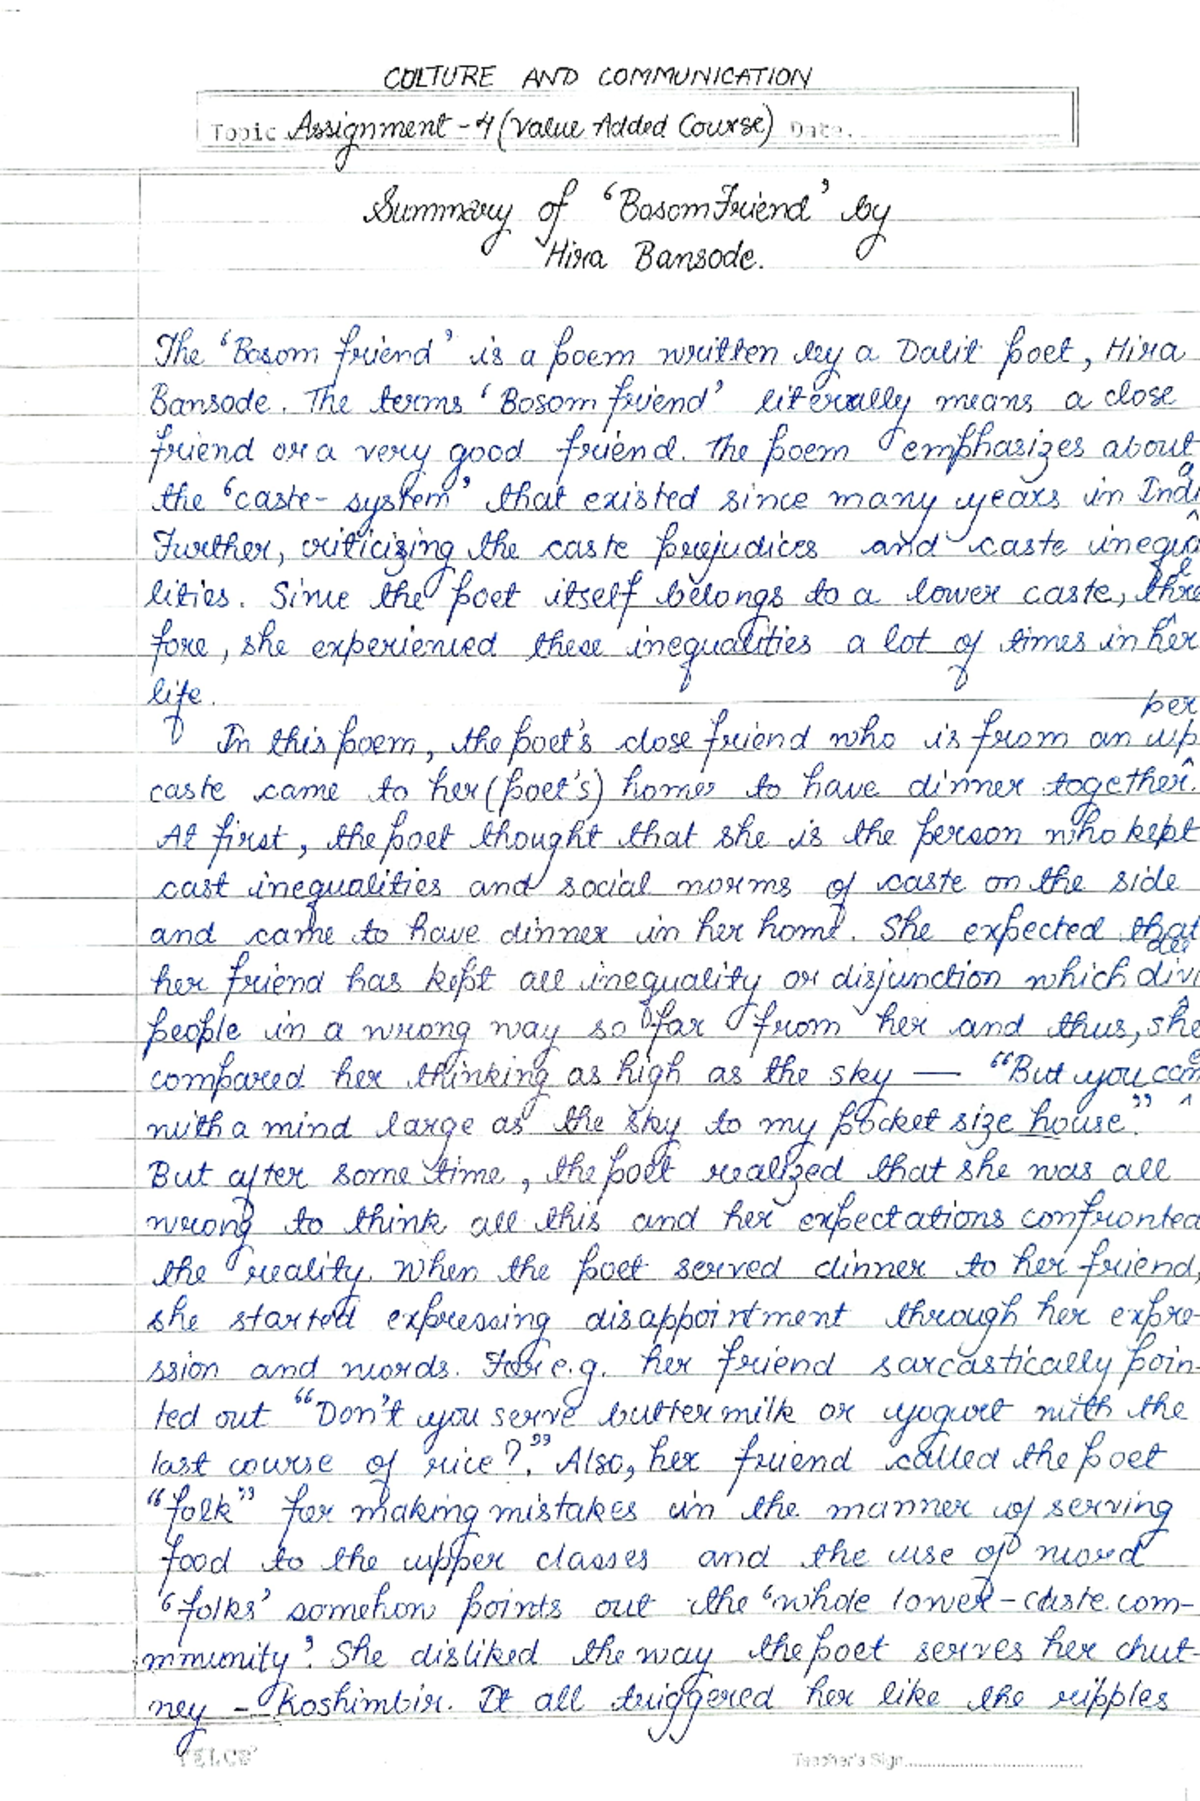 CULTURE AND COMMUNICATION
Topic Assignment - 4 (Value Added Course) Date.
Summary of 'Bosom Friend' by
Hira Bansode.
The 'Bosom friend' is a poem written by a Dalit poet, Hira
Bansode. The terms 'Bosom friend' literally means a close
friend or a very good friend. The poem emphasizes about
the 'caste-system' that existed since many years in India
Further, criticizing the caste prejudices and caste inequa
lities. Since the poet itself belongs to a lower caste, there
fore, she experienced these inequalities a lot of times in her
life.
In this poem, the poet's close friend who is from an upper
caste came to her (poet's) home to have dinner together.
At first, the poet thought that she is the person who kept
cast inequalities and social norms of caste on the side
and came to have dinner in her home. She expected that
her friend has kept all inequality or disjunction which divide
people in a wrong way so far from her and thus, she
compared her thinking as high as the sky — "But you come
with a mind large as the sky to my pocket size house."
But after some time, the poet realized that she was all
wrong to think all this and her expectations confronted
the reality. When the poet served dinner to her friend,
she started expressing disappointment through her expre-
ssion and words. For e.g. her friend sarcastically poin-
ted out "Don't you serve buttermilk or yogurt with the
last course of rice?." Also, her friend called the poet
"folk" for making mistakes in the manner of serving
food to the upper classes and the use of word
'folks' somehow points out the 'whole lower-caste com-
mmunity'. She disliked the way the poet serves her chut-
ney - Koshimbir. It all triggered her like the ripples
Teacher's Sign